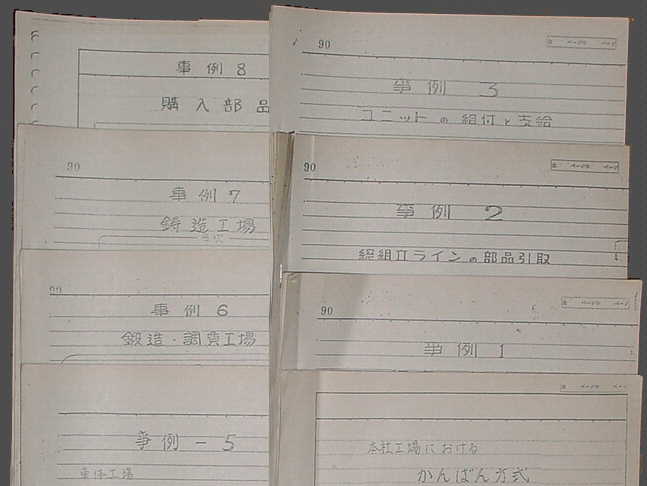 事例8
購入部品
90
事例7
鋳造工場
事例6
鍛造・調質工場
事例-5
車体工場
90
事例3
ユニットの組付と支給
90
事例2
総組立ラインの部品引取
90
事例1
本社工場における
かんばん方式